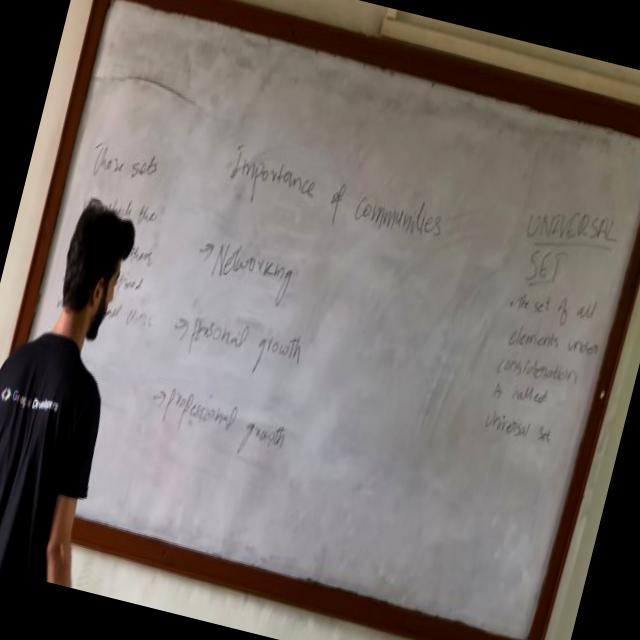 Those sets
the
Importance of communities
→ Networking
→ personal growth
→ professional growth
UNIVERSAL
SET
• the set of all
elements under
consideration
is called
Universal set